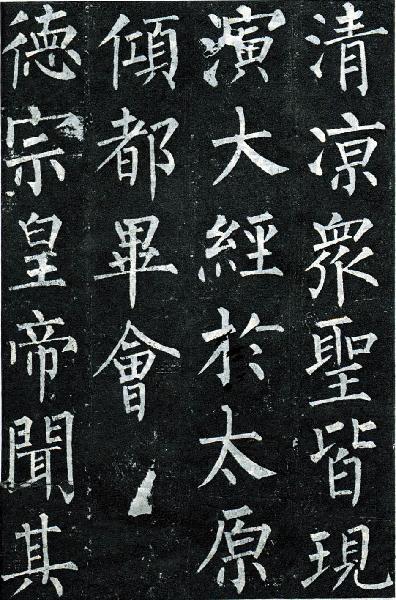 清涼眾聖皆現
演大經於太原
傾都畢會
德宗皇帝聞其